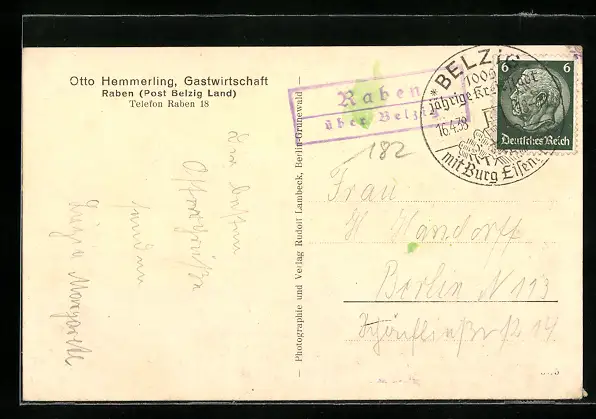 Otto Hemmerling, Gastwirtschaft
Raben (Post Belzig Land)
Telefon Raben 18
Die besten
Ostergrüße
senden
— Photographie und Verlag Rudolf Lambeck, Berlin-Grunewald —
Raben
über Belzig
182
* BELZIG
jährige Kre
16.4.38
mit Burg Eisen
6 6
Deutsches Reich
Frau
Handorff
Berlin N 113
14